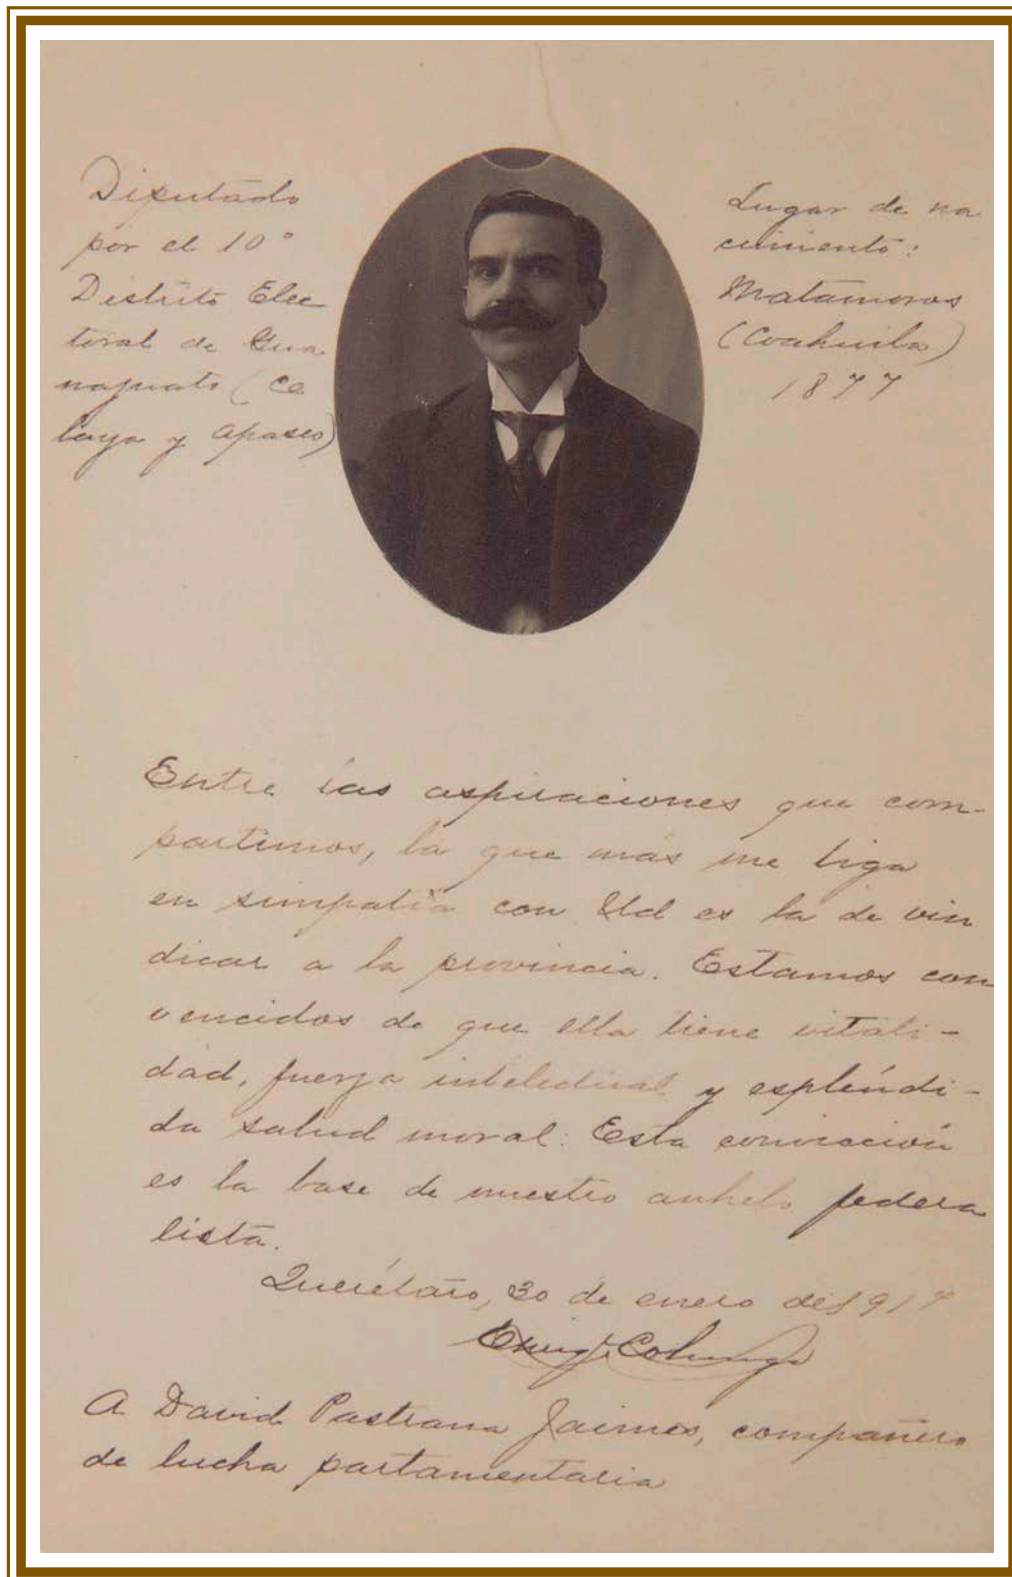 Diputado
por el 10°
Distrito Elec
toral de Gua
najuato (Ce
laya y Apaseo)
Lugar de na
cimiento:
Matamoros
(Coahuila)
1877
Entre las aspiraciones que com-
partimos, la que más me liga
en simpatía con Ud es la de vin
dicar a la provincia. Estamos con
vencidos de que ella tiene vitali-
dad, fuerza intelectual y espléndi-
da salud moral. Esta convicción
es la base de nuestro anhelo federa
lista.
Querétaro, 30 de enero de 1917
Enriq. Colunga
A David Pastrana Jaimes, compañero
de lucha parlamentaria